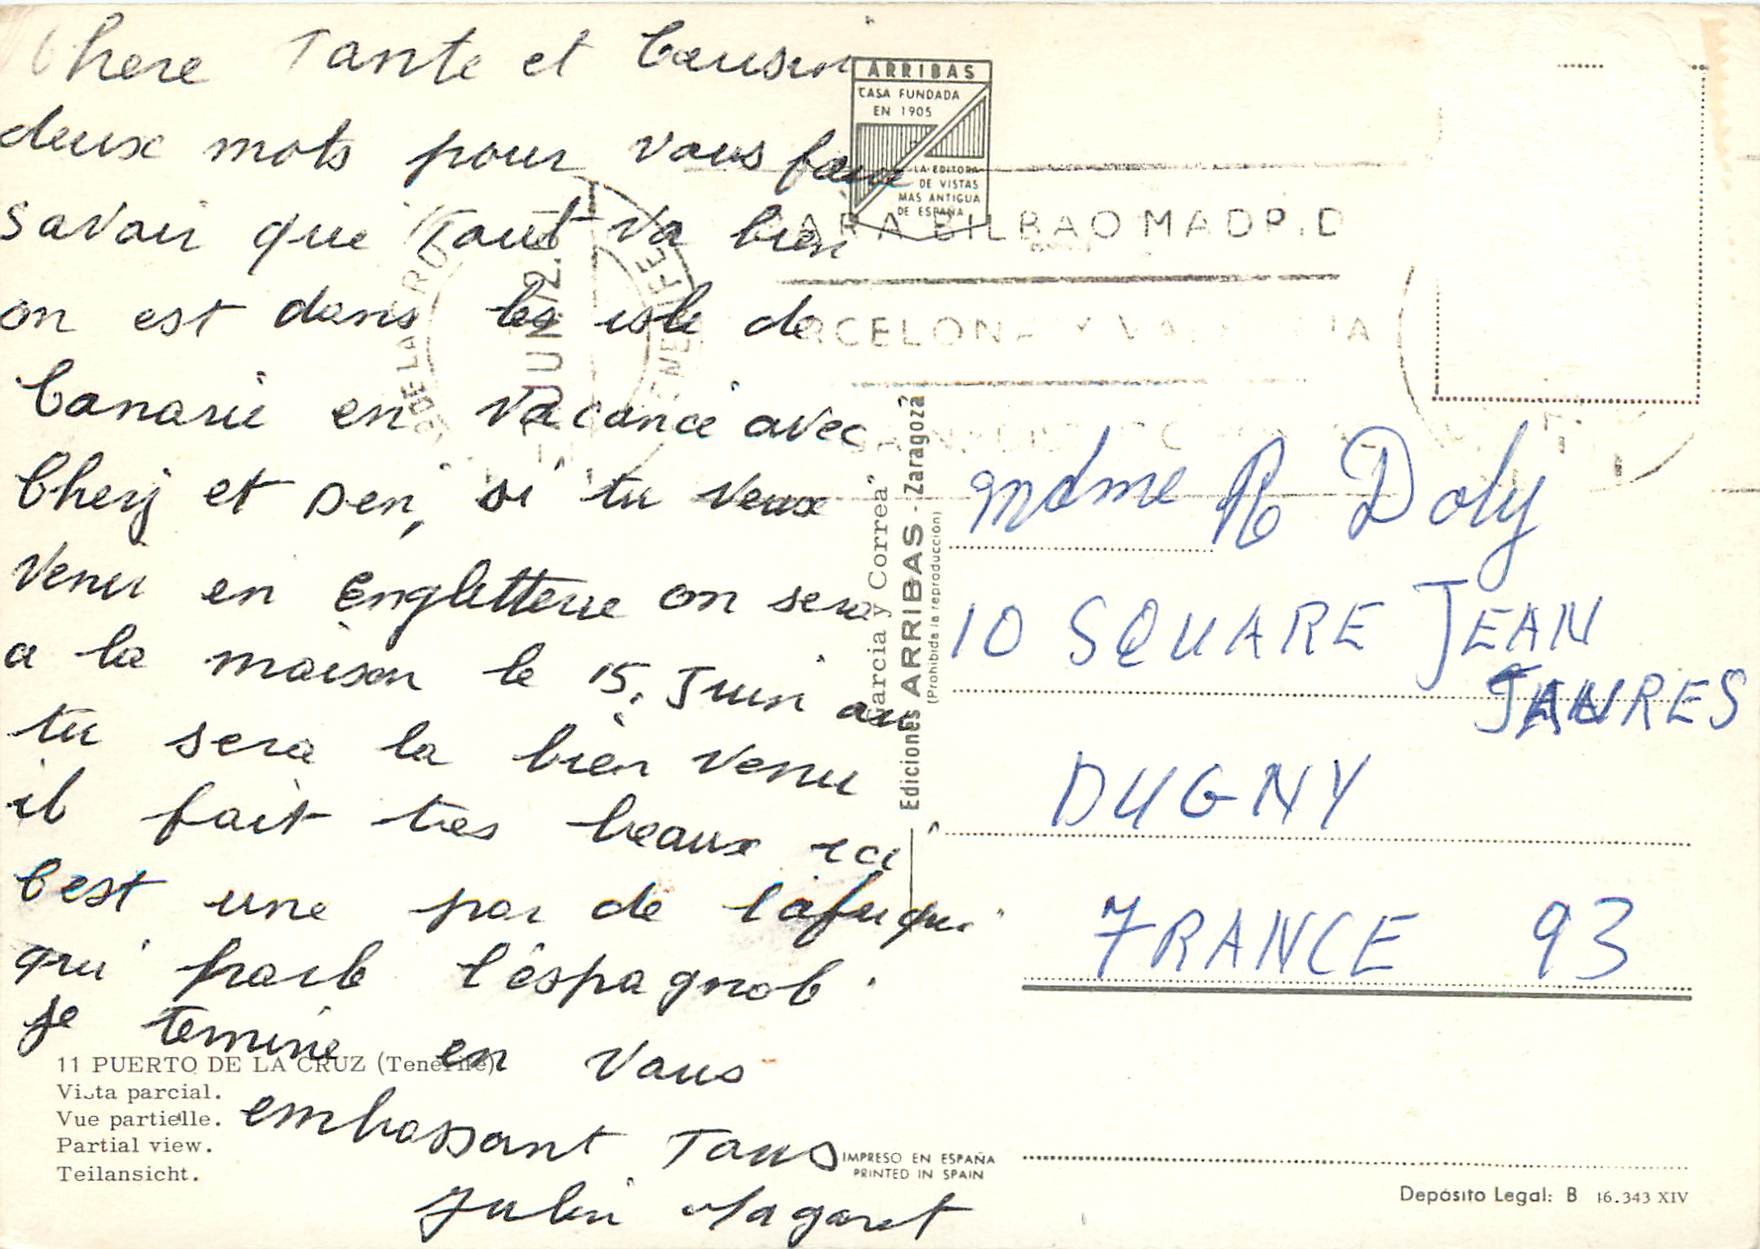 Chere Tante et Cousin
deux mots pour vous faire
savoir que Tout va bien
on est dans les isle de
Canarie en vacance avec
Chery et Den, si tu veux
venir en Engletterre on sera
a la maison le 15. Juin au
tu sera la bien venu
il fait tres beaux ici
C'est une par de l'afrique
qui parle l'éspagnole.
Je temine en vous
embrassant Tous
Julien Magaret
ARRIBAS
CASA FUNDADA
EN 1905
LA EDITORA
DE VISTAS
MAS ANTIGUA
DE ESPAÑA
PARA BILBAO MADRID
BARCELONA Y VALENCIA
DE LA CRUZ
TENERIFE
JUN 72
Garcia y Correa"
Ediciones ARRIBAS - Zaragoza
(Prohibida la reproducción)
mdme R Doly
10 SQUARE JEAN
JAURES
DUGNY
FRANCE 93
11 PUERTO DE LA CRUZ (Tenerife)
Vista parcial.
Vue partielle.
Partial view.
Teilansicht.
IMPRESO EN ESPAÑA
PRINTED IN SPAIN
Depósito Legal: B 16.343 XIV